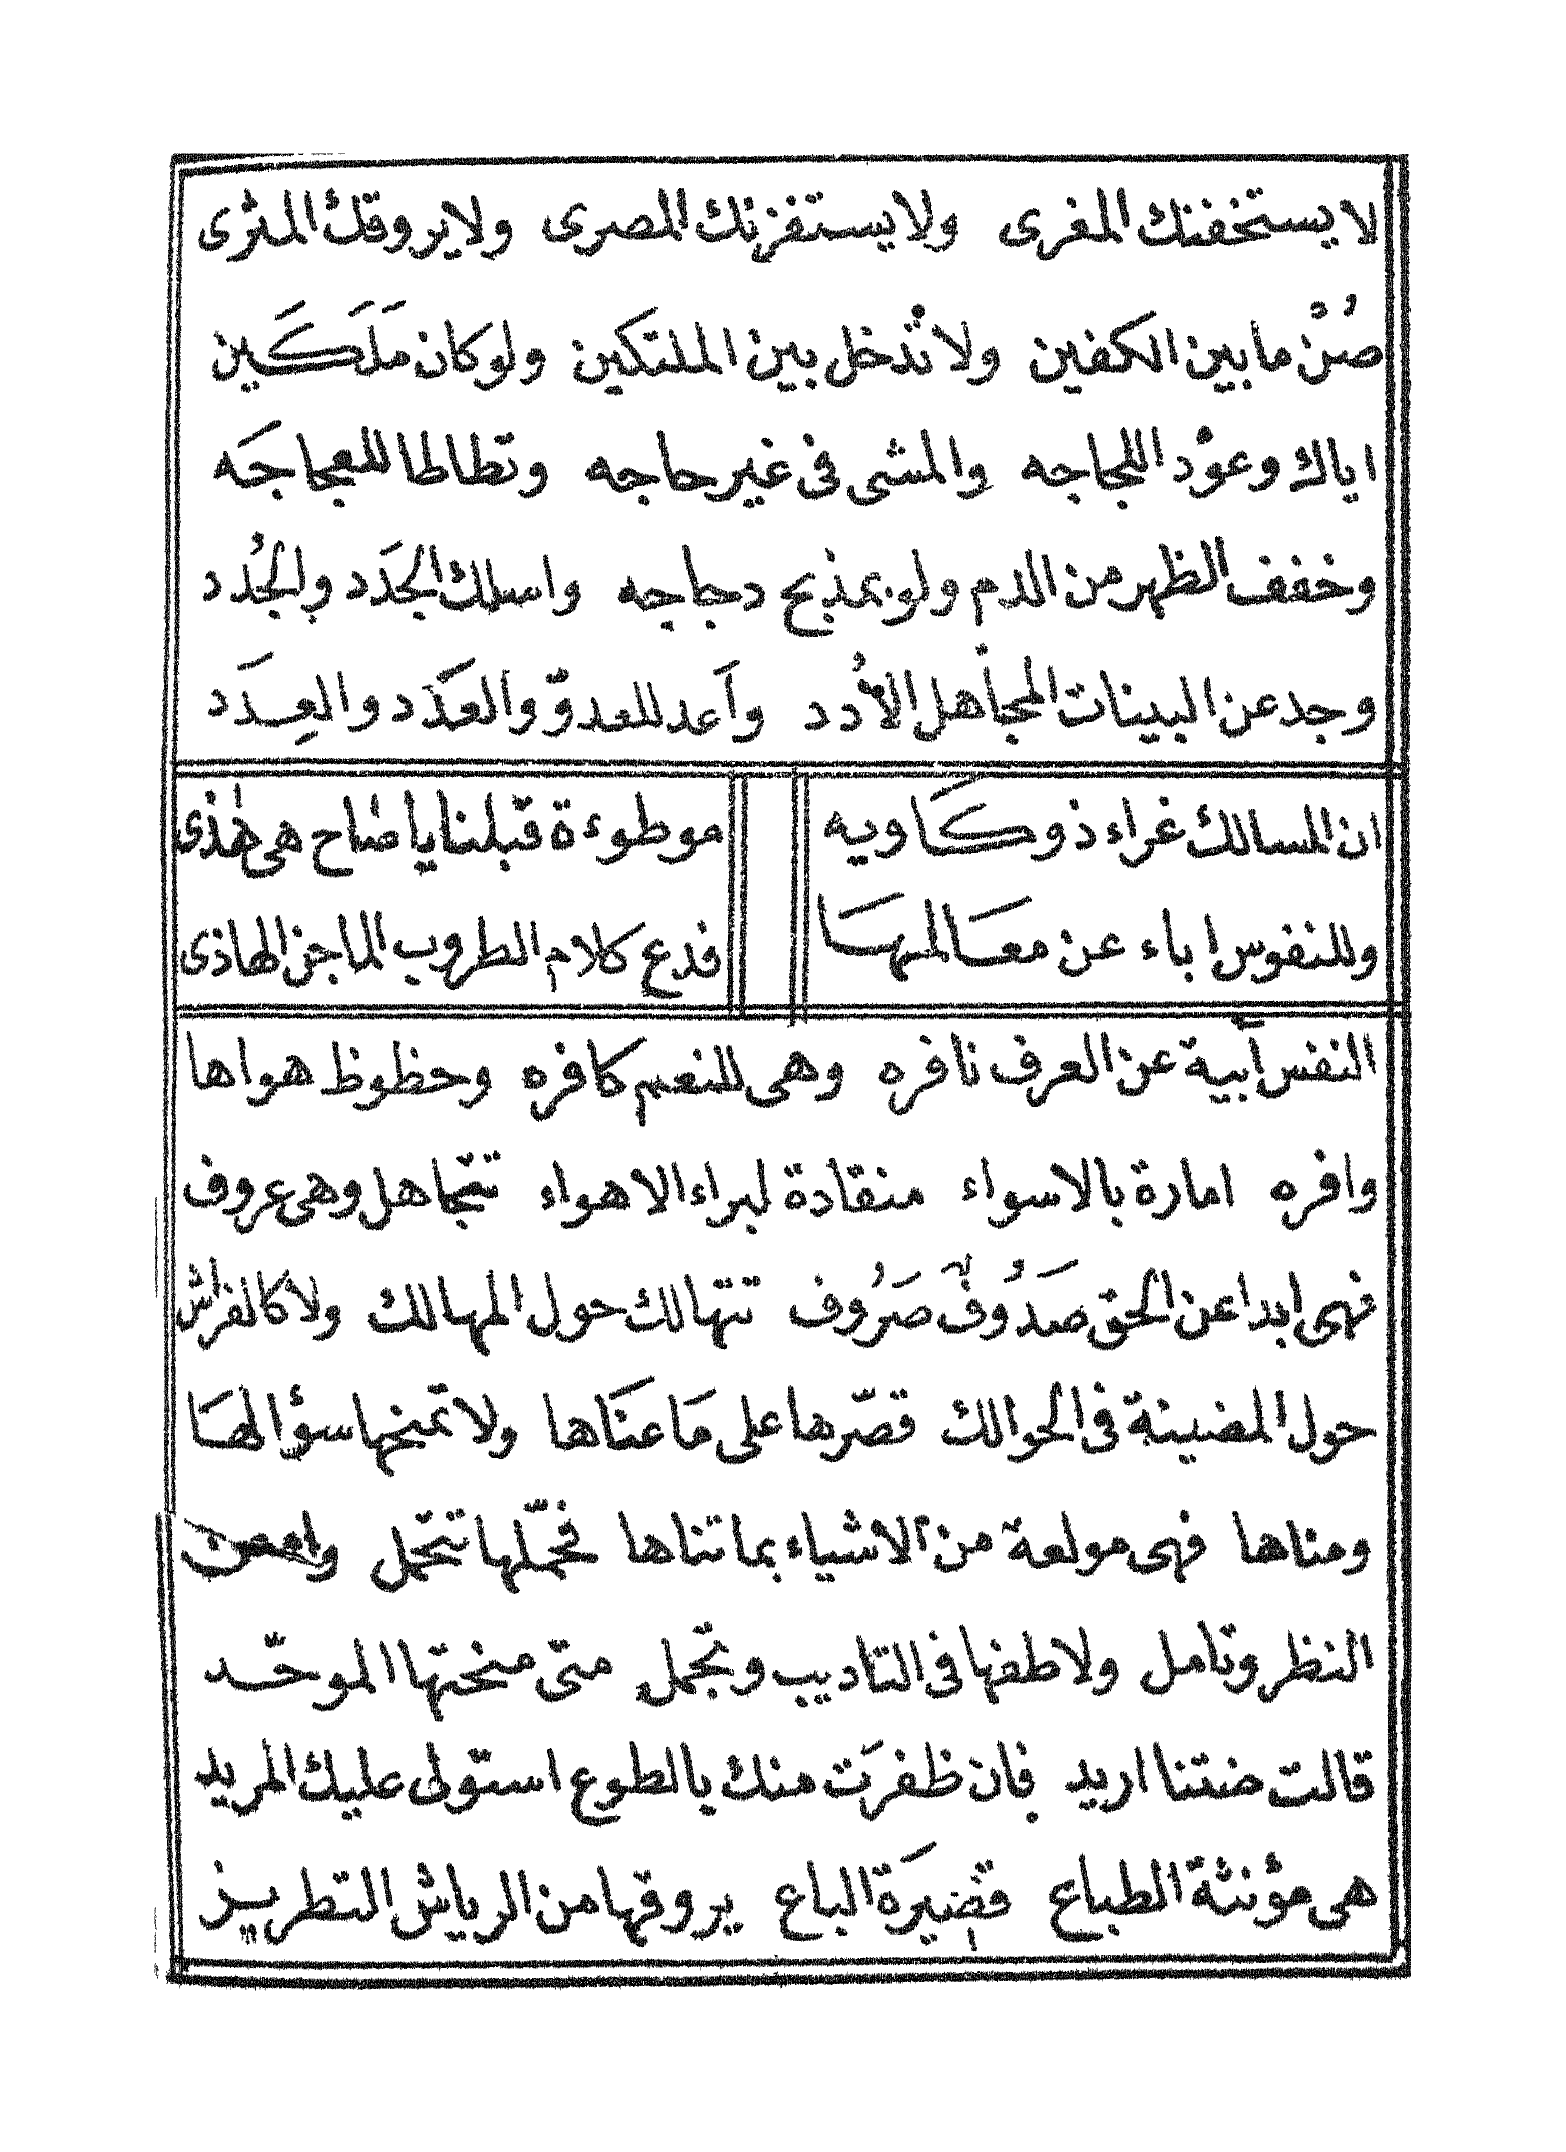 لا يستخفنك المغرى ولا يستفزنك المصرى ولا يروقك المثرى
صُنْ ما بين الكفين ولا تدخل بين الملتكين ولو كان مَلَكَين
اياك وعوّد اللجاجه والمشى فى غير حاجه وتطالطا للعجاجَه
وخفف الظهر من الدم ولو بمذبح دجاجه واسلك الجَدَد والجُدد
وجد عن البينات المجاهل الأُدد وآعد للعدوّ والعَدَد والعِدَد
ان المسالك غراء ذو كَاويه موطوءة قبلنا يا صاح هى هٰذى
وللنفوس اباء عن معَالمهَا فدع كلام الطروب الماجن الهاذى
النفس آبية عن العرف نافره وهى للنعم كافره وحظوظ هواها
وافره امارة بالاسواء منقادة لبراء الاهواء تتجاهل وهى عروف
فهى ابدا عن الحق صَدُوفٌ صَرُوف تتهالك حول المهالك ولا كالفراش
حول المضيئة فى الحوالك قصّرها على مَا عنَاها ولا تمنحها سؤالهَا
ومناها فهى مولعة من الاشياء بما تناها فحمّلها تتحمل وامعن
النظر وتامل ولاطفها فى التاديب وتجمل متى منحتها الموحّد
قالت ضتنا اريد فان ظفرَت منك بالطوع استولى عليك المريد
هى مؤنثة الطباع قصيَرة الباع يروقها من الرياش التطريز